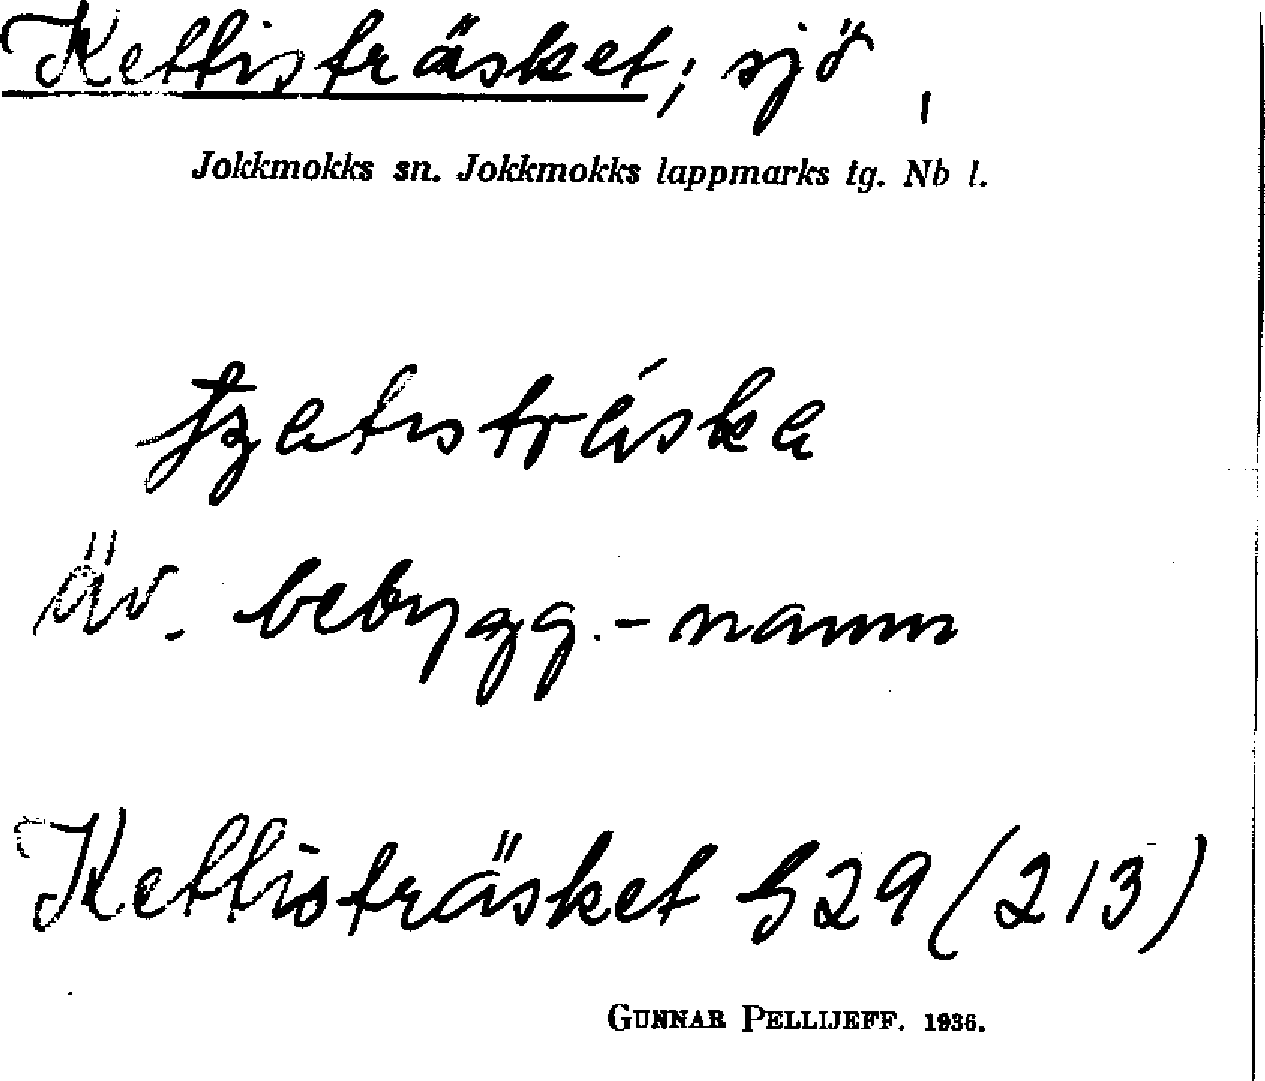 Kettisträsket; sjö
Jokkmokks sn. Jokkmokks lappmarks tg. Nb l.
äv. bebygg.-namn
Kettisträsket 529 (213)
GUNNAR PELLIJEFF. 1936.